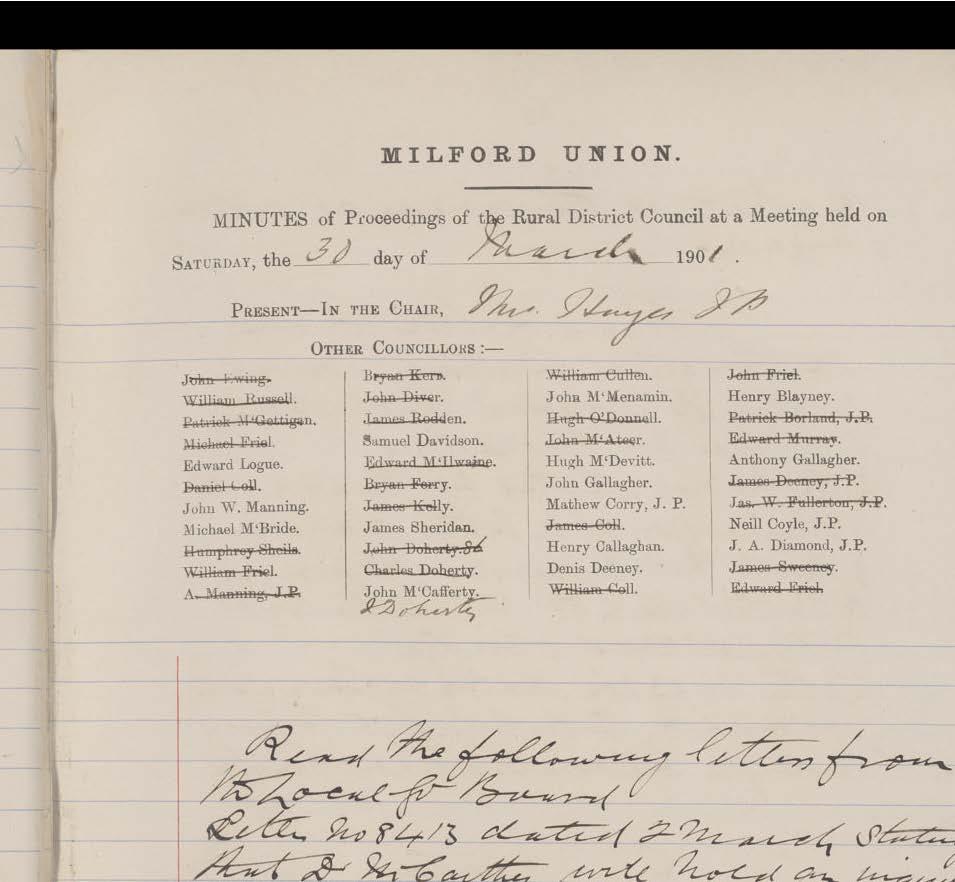 MILFORD UNION.
MINUTES of Proceedings of the Rural District Council at a Meeting held on
SATURDAY, the 30 day of March 1901.
PRESENT—IN THE CHAIR, Mrs. Hayes J P
OTHER COUNCILLORS :—
John Ewing.
William Russell.
Patrick M‘Gettigan.
Michael Friel.
Edward Logue.
Daniel Coll.
John W. Manning.
Michael M‘Bride.
Humphrey Sheils.
William Friel.
A. Manning, J.P.
Bryan Kern.
John Diver.
James Rodden.
Samuel Davidson.
Edward M‘Ilwaine.
Bryan Ferry.
James Kelly.
James Sheridan.
John Doherty.
Charles Doherty.
John M‘Cafferty.
J Doherty
William Cullen.
John M‘Menamin.
Hugh O’Donnell.
John M‘Ateer.
Hugh M‘Devitt.
John Gallagher.
Mathew Corry, J. P.
James Coll.
Henry Callaghan.
Denis Deeney.
William Coll.
John Friel.
Henry Blayney.
Patrick Borland, J.P.
Edward Murray.
Anthony Gallagher.
James Deeney, J.P.
Jas. W. Fullerton, J.P.
Neill Coyle, J.P.
J. A. Diamond, J.P.
James Sweeney.
Edward Friel.
Read the following letters from
the Local Gv Board
Letter No 8413 dated 2 March
that Dr McCarthy will hold an